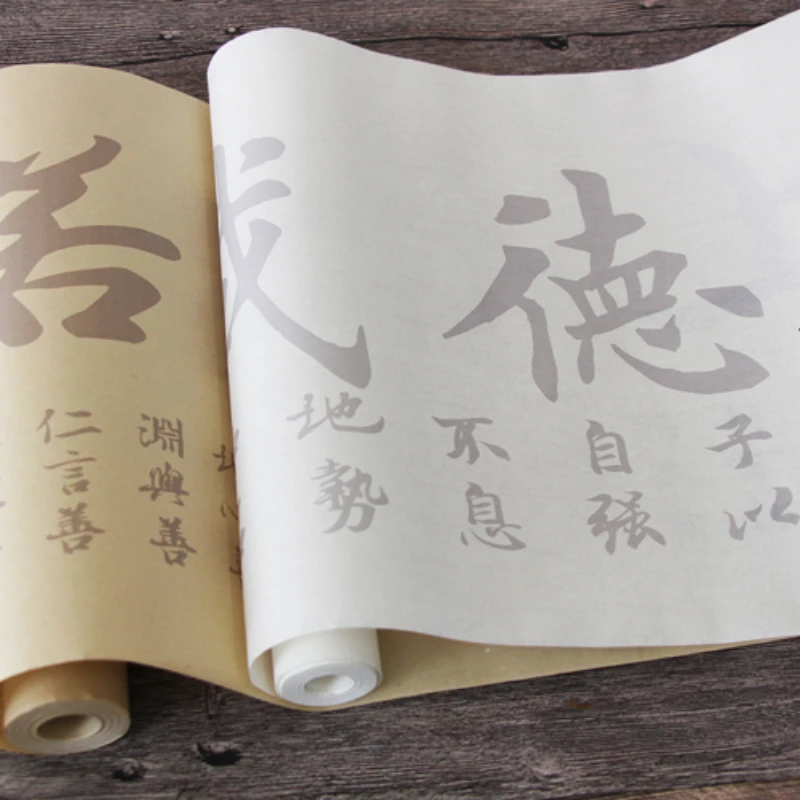 德
子以
自强
不息
地勢
若
淵與善
仁言善